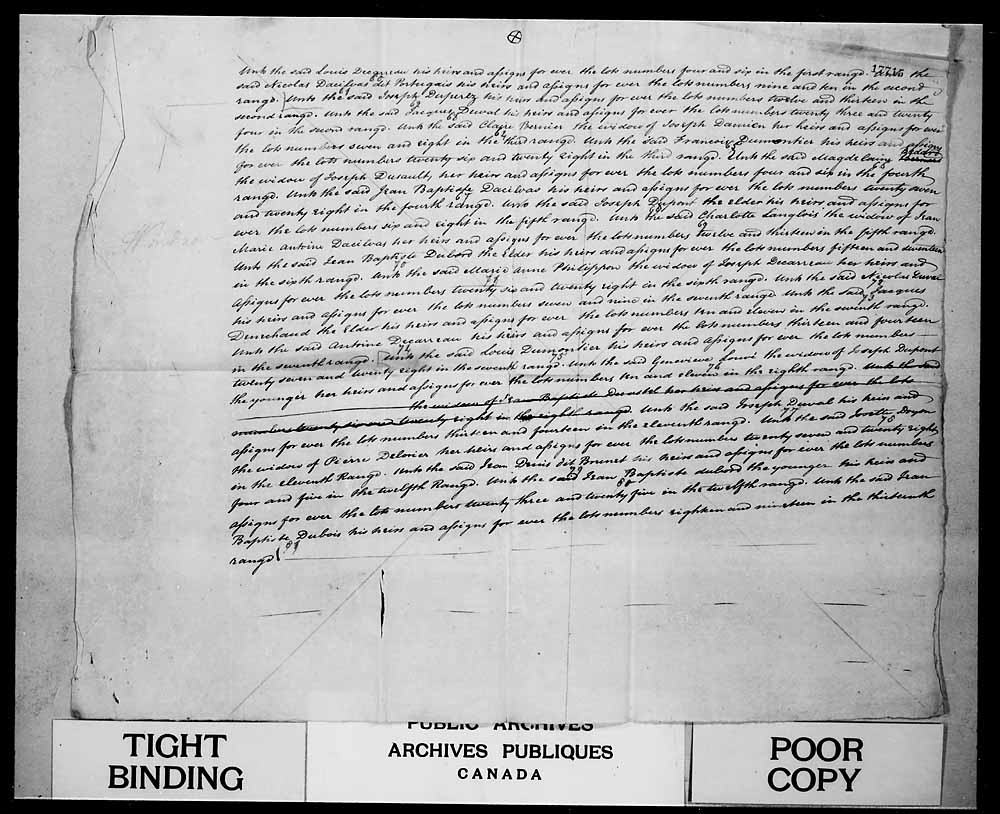 17715
Unto the said Louis Decarreau his heirs and assigns for ever the lots numbers four and six in the first range. Unto the
said Nicolas Dacilvas dit Portugais his heirs and assigns for ever the lots numbers nine and ten in the second
range. Unto the said Joseph Duperlz his heirs and assigns for ever the lots numbers twelve and thirteen in the
second range. Unto the said Jacques Duval his heirs and assigns for ever the lots numbers twenty three and twenty
four in the second range. Unto the said Claire Bernier the widow of Joseph Damien her heirs and assigns for ever
the lots numbers seven and eight in the third range. Unto the said Francois Dumontier his heirs and assigns
for ever the lots numbers twenty six and twenty eight in the third range. Unto the said Magdelaine
the widow of Joseph Dusault her heirs and assigns for ever the lots numbers four and six in the fourth
range. Unto the said Jean Baptiste Dacilvas his heirs and assigns for ever the lots numbers twenty seven
and twenty eight in the fourth range. Unto the said Joseph Dupont the elder his heirs and assigns for
ever the lots numbers six and eight in the fifth range. Unto the said Charlotte Langlois the widow of Jean
Marie Antoine Dacilvas her heirs and assigns for ever the lots numbers twelve and thirteen in the fifth range.
Unto the said Jean Baptiste Dubord the elder his heirs and assigns for ever the lots numbers fifteen and seventeen
in the sixth range. Unto the said Marie Anne Philippon the widow of Joseph Decarreau her heirs and
assigns for ever the lots numbers twenty six and twenty eight in the sixth range. Unto the said Nicolas Duval
his heirs and assigns for ever the lots numbers seven and nine in the seventh range Unto the said Jacques
Denechaud the elder his heirs and assigns for ever the lots numbers ten and eleven in the seventh range.
Unto the said Antoine Decarreau his heirs and assigns for ever the lots numbers thirteen and fourteen
in the seventh range. Unto the said Louis Dumontier his heirs and assigns for ever the lots numbers
twenty seven and twenty eight in the seventh range. Unto the said Genevieve the widow of Joseph Dupont
the younger her heirs and assigns for ever the lots numbers ten and eleven in the eighth range. Unto the said
the widow of Jean Baptiste her heirs and assigns for ever the lots
numbers twenty six and twenty eight in the eighth range. Unto the said Joseph Duval his heirs and
assigns for ever the lots numbers thirteen and fourteen in the eleventh range. Unto the said Josette Doyon
the widow of Pierre Delorier her heirs and assigns for ever the lots numbers twenty seven and twenty eight
in the eleventh Range. Unto the said Jean Denis dit Brunet his heirs and assigns for ever the lots numbers
four and five in the twelfth Range. Unto the said Jean Baptiste dubord the younger his heirs and
assigns for ever the lots numbers twenty three and twenty five in the twelfth range. Unto the said Jean
Baptiste Dubois his heirs and assigns for ever the lots numbers eighteen and nineteen in the thirteenth
range
TIGHT
BINDING
PUBLIC ARCHIVES
ARCHIVES PUBLIQUES
CANADA
POOR
COPY